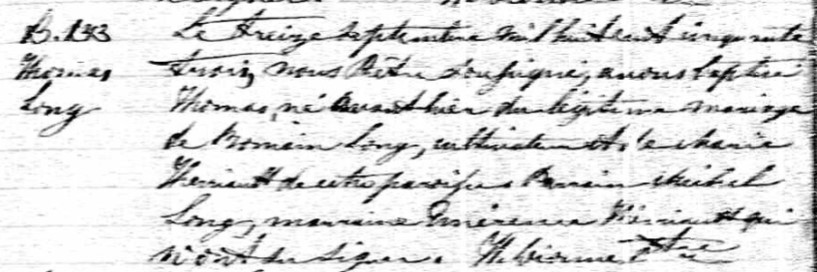 B.133 Le treize septembre mil huit cent cinquante
Thomas trois, nous Prêtre soussigné, avons baptisé
Long Thomas, né avant hier du légitime mariage
de Romain Long, cultivateur et de Marie
Theriault de cette paroisse. Parrain Michel
Long, marraine Emérence Theriault qui
n'ont su signer. Ptre